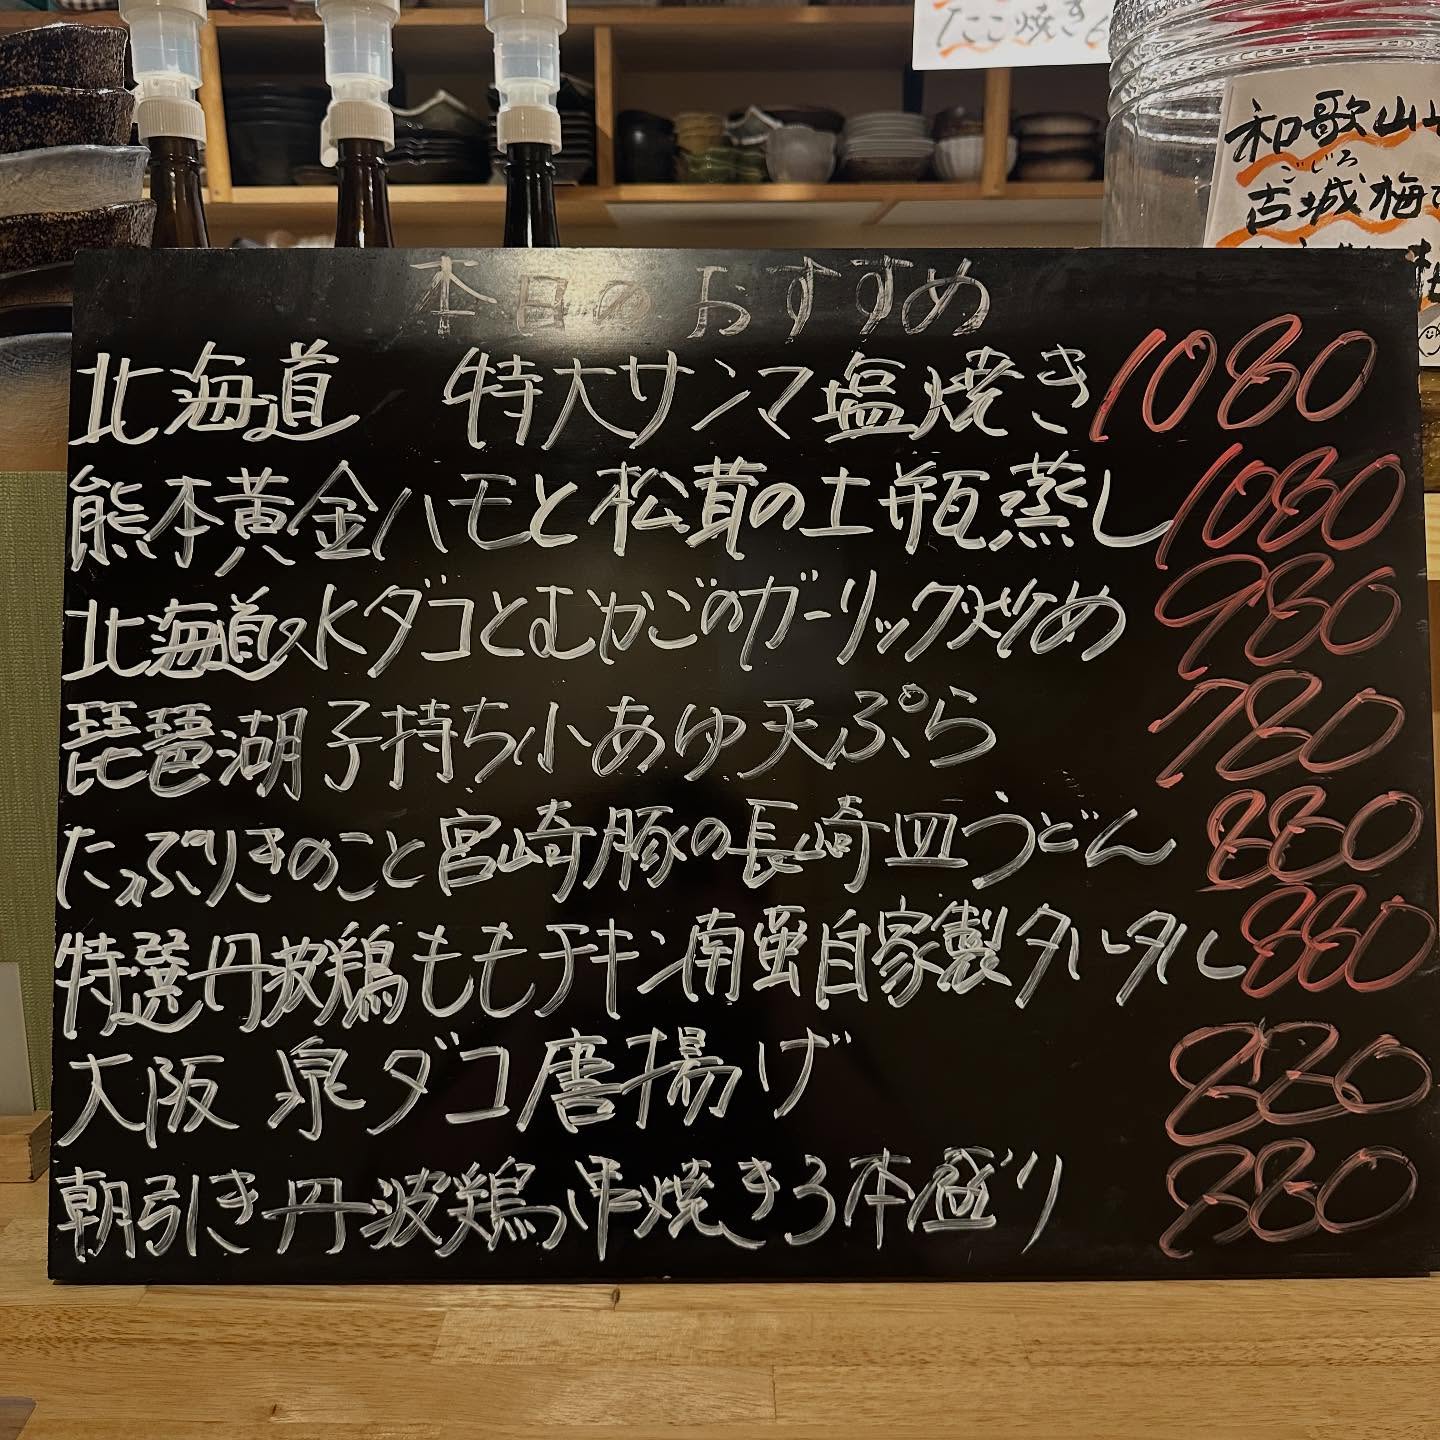 たこ焼き
和歌山
こじろ
古城梅
本日のおすすめ
北海道 特大サンマ塩焼き 1080
熊本黄金ハモと松茸の土瓶蒸し 1080
北海道水ダコとむかごのガーリック炒め 980
琵琶湖子持ち小あゆ天ぷら 780
たっぷりきのこと宮崎豚の長崎皿うどん 880
特選丹波鶏ももチキン南蛮自家製タルタル 880
大阪 泉ダコ唐揚げ 880
朝引き丹波鶏串焼き3本盛り 880